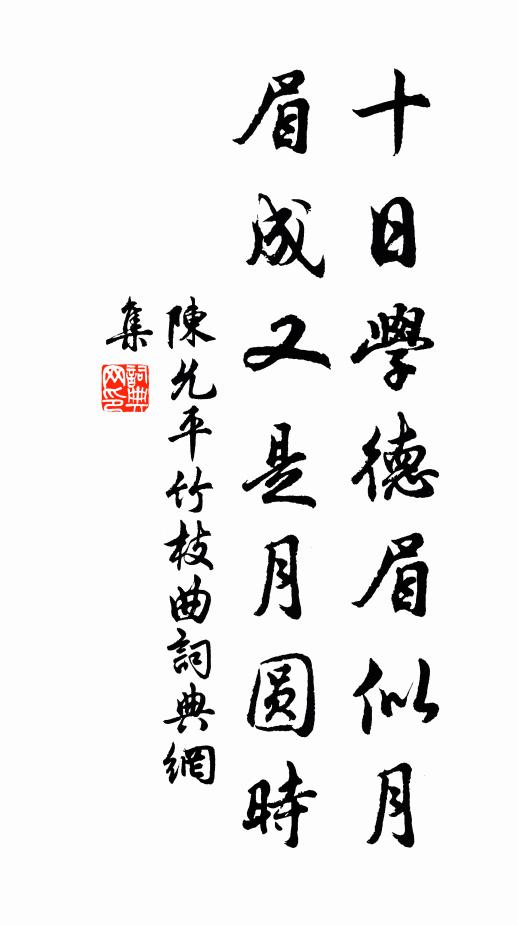 十日學德眉似月
眉成又是月圆時
陳允平竹枝曲詞典網
集
詞典网印